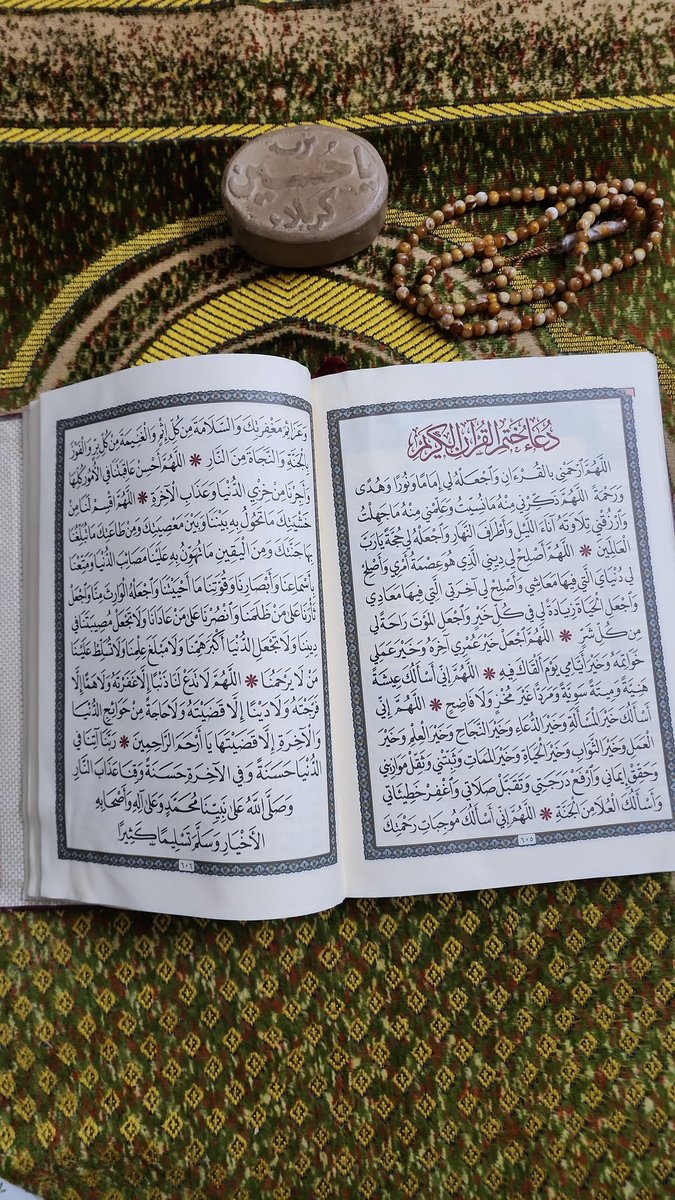 تربة
يا حسين
كربلاء
دُعَاءُ خَتْمِ القُرْآنِ الكَرِيمِ
اللَّهُمَّ ارْحَمْنِي بِالْقُرْءَانِ وَاجْعَلْهُ لِي إِمَامًا وَنُورًا وَهُدًى
وَرَحْمَةً اللَّهُمَّ ذَكِّرْنِي مِنْهُ مَا نُسِّيتُ وَعَلِّمْنِي مِنْهُ مَا جَهِلْتُ
وَارْزُقْنِي تِلَاوَتَهُ آنَاءَ اللَّيْلِ وَأَطْرَافَ النَّهَارِ وَاجْعَلْهُ لِي حُجَّةً يَارَبَّ
الْعَالَمِينَ * اللَّهُمَّ أَصْلِحْ لِي دِينِي الَّذِي هُوَ عِصْمَةُ أَمْرِي وَأَصْلِحْ
لِي دُنْيَايَ الَّتِي فِيهَا مَعَاشِي وَأَصْلِحْ لِي آخِرَتِي الَّتِي فِيهَا مَعَادِي
وَاجْعَلِ الْحَيَاةَ زِيَادَةً لِي فِي كُلِّ خَيْرٍ وَاجْعَلِ الْمَوْتَ رَاحَةً لِي
مِنْ كُلِّ شَرٍّ * اللَّهُمَّ اجْعَلْ خَيْرَ عُمْرِي آخِرَهُ وَخَيْرَ عَمَلِي
خَوَاتِمَهُ وَخَيْرَ أَيَّامِي يَوْمَ أَلْقَاكَ فِيهِ * اللَّهُمَّ إِنِّي أَسْأَلُكَ عِيشَةً
هَنِيَّةً وَمِيتَةً سَوِيَّةً وَمَرَدًّا غَيْرَ مُخْزٍ وَلَا فَاضِحٍ * اللَّهُمَّ إِنِّي
أَسْأَلُكَ خَيْرَ الْمَسْأَلَةِ وَخَيْرَ الدُّعَاءِ وَخَيْرَ النَّجَاحِ وَخَيْرَ الْعِلْمِ وَخَيْرَ
الْعَمَلِ وَخَيْرَ الثَّوَابِ وَخَيْرَ الْحَيَاةِ وَخَيْرَ الْمَمَاتِ وَثَبِّتْنِي وَثَقِّلْ مَوَازِينِي
وَحَقِّقْ إِيمَانِي وَارْفَعْ دَرَجَتِي وَتَقَبَّلْ صَلَاتِي وَاغْفِرْ خَطِيئَاتِي
وَأَسْأَلُكَ الْعُلَا مِنَ الْجَنَّةِ * اللَّهُمَّ إِنِّي أَسْأَلُكَ مُوجِبَاتِ رَحْمَتِكَ
٦٠٥
وَعَزَائِمَ مَغْفِرَتِكَ وَالسَّلَامَةَ مِنْ كُلِّ إِثْمٍ وَالْغَنِيمَةَ مِنْ كُلِّ بِرٍّ وَالْفَوْزَ
بِالْجَنَّةِ وَالنَّجَاةَ مِنَ النَّارِ * اللَّهُمَّ أَحْسِنْ عَاقِبَتَنَا فِي الْأُمُورِ كُلِّهَا
وَأَجِرْنَا مِنْ خِزْيِ الدُّنْيَا وَعَذَابِ الْآخِرَةِ * اللَّهُمَّ اقْسِمْ لَنَا مِنْ
خَشْيَتِكَ مَا تَحُولُ بِهِ بَيْنَنَا وَبَيْنَ مَعْصِيَتِكَ وَمِنْ طَاعَتِكَ مَا تُبَلِّغُنَا
بِهَا جَنَّتَكَ وَمِنَ الْيَقِينِ مَا تُهَوِّنُ بِهِ عَلَيْنَا مَصَائِبَ الدُّنْيَا وَمَتِّعْنَا
بِأَسْمَاعِنَا وَأَبْصَارِنَا وَقُوَّتِنَا مَا أَحْيَيْتَنَا وَاجْعَلْهُ الْوَارِثَ مِنَّا وَاجْعَلْ
ثَأْرَنَا عَلَى مَنْ ظَلَمَنَا وَانْصُرْنَا عَلَى مَنْ عَادَانَا وَلَا تَجْعَلْ مُصِيبَتَنَا فِي
دِينِنَا وَلَا تَجْعَلِ الدُّنْيَا أَكْبَرَ هَمِّنَا وَلَا مَبْلَغَ عِلْمِنَا وَلَا تُسَلِّطْ عَلَيْنَا
مَنْ لَا يَرْحَمُنَا * اللَّهُمَّ لَا تَدَعْ لَنَا ذَنْبًا إِلَّا غَفَرْتَهُ وَلَا هَمًّا إِلَّا
فَرَّجْتَهُ وَلَا دَيْنًا إِلَّا قَضَيْتَهُ وَلَا حَاجَةً مِنْ حَوَائِجِ الدُّنْيَا
وَالْآخِرَةِ إِلَّا قَضَيْتَهَا يَا أَرْحَمَ الرَّاحِمِينَ * رَبَّنَا آتِنَا فِي
الدُّنْيَا حَسَنَةً وَفِي الْآخِرَةِ حَسَنَةً وَقِنَا عَذَابَ النَّارِ
وَصَلَّى اللَّهُ عَلَى نَبِيِّنَا مُحَمَّدٍ وَعَلَى آلِهِ وَأَصْحَابِهِ
الْأَخْيَارِ وَسَلَّمَ تَسْلِيمًا كَثِيرًا
٦٠٦